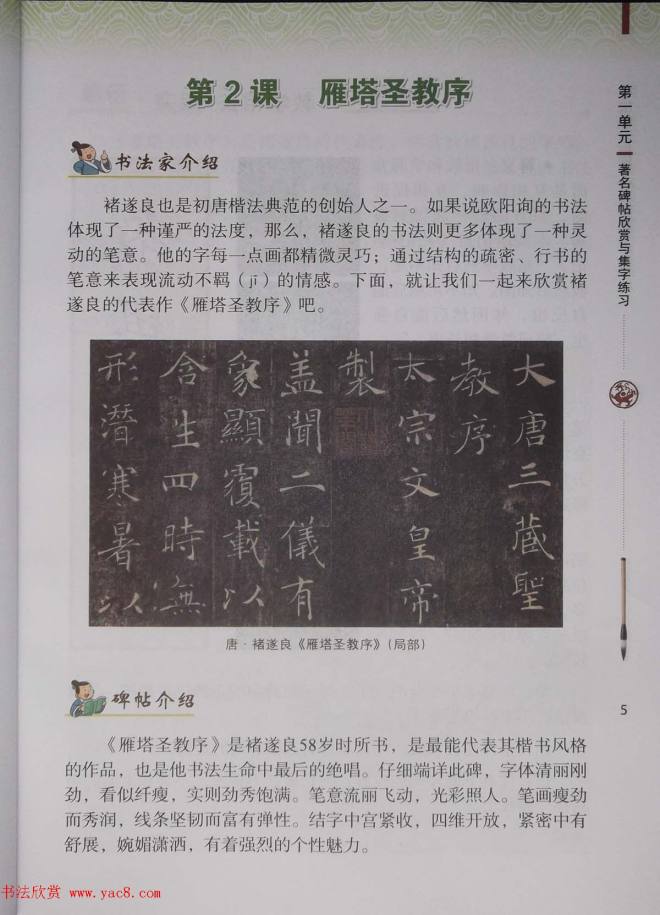 第2课 雁塔圣教序
书法家介绍
褚遂良也是初唐楷法典范的创始人之一。如果说欧阳询的书法
体现了一种谨严的法度，那么，褚遂良的书法则更多体现了一种灵
动的笔意。他的字每一点画都精微灵巧；通过结构的疏密、行书的
笔意来表现流动不羁（jī）的情感。下面，就让我们一起来欣赏褚
遂良的代表作《雁塔圣教序》吧。
大唐三藏聖
教序
太宗文皇帝
製
盖聞二儀有
象顯覆載以
含生四時無
形潛寒暑以
唐·褚遂良《雁塔圣教序》（局部）
碑帖介绍
《雁塔圣教序》是褚遂良58岁时所书，是最能代表其楷书风格
的作品，也是他书法生命中最后的绝唱。仔细端详此碑，字体清丽刚
劲，看似纤瘦，实则劲秀饱满。笔意流丽飞动，光彩照人。笔画瘦劲
而秀润，线条坚韧而富有弹性。结字中宫紧收，四维开放，紧密中有
舒展，婉媚潇洒，有着强烈的个性魅力。
第一单元
著名碑帖欣赏与集字练习
5
书法欣赏 www.yac8.com